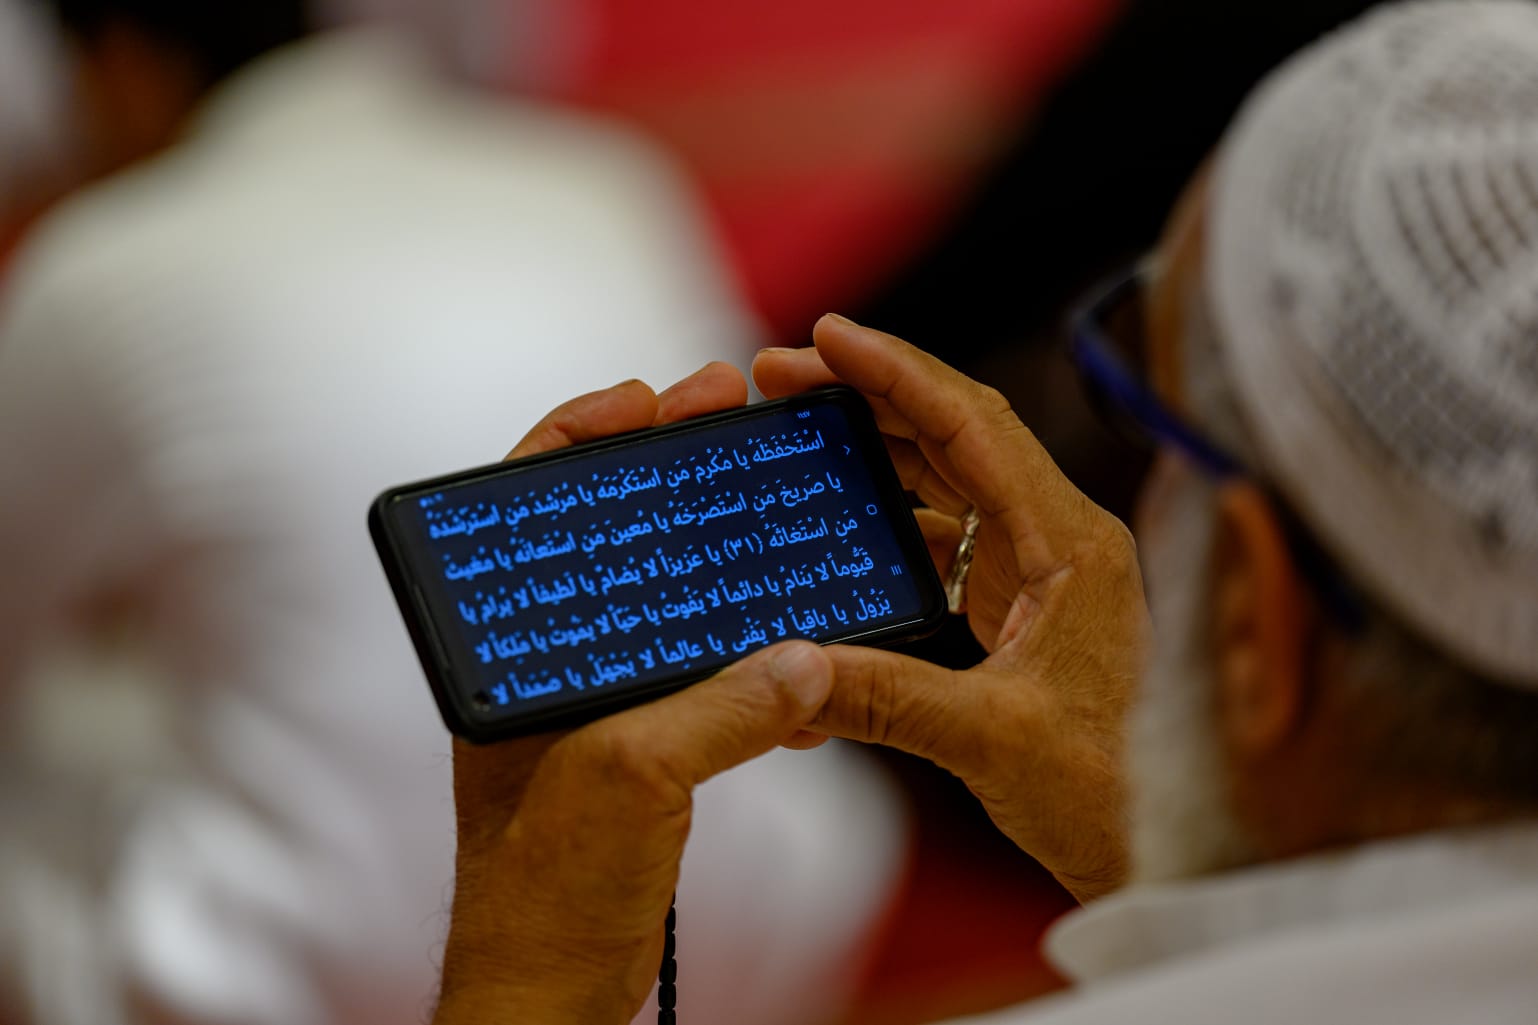 ١١:٤٧
اسْتَحْفَظَهُ يا مُكْرِمَ مَنِ اسْتَكْرَمَهُ يا مُرْشِدَ مَنِ اسْتَرْشَدَهُ
يا صَريخَ مَنِ اسْتَصْرَخَهُ يا مُعينَ مَنِ اسْتَعانَهُ يا مُغيثَ
مَنِ اسْتَغاثَهُ (٣١) يا عَزيزاً لا يُضامُ يا لَطيفاً لا يُرامُ يا
قَيُّوماً لا يَنامُ يا دائِماً لا يَفُوتُ يا حَيّاً لا يَمُوتُ يا مَلِكاً لا
يَزُولُ يا باقِياً لا يَفْنى يا عالِماً لا يَجْهَلُ يا صَمَداً لا